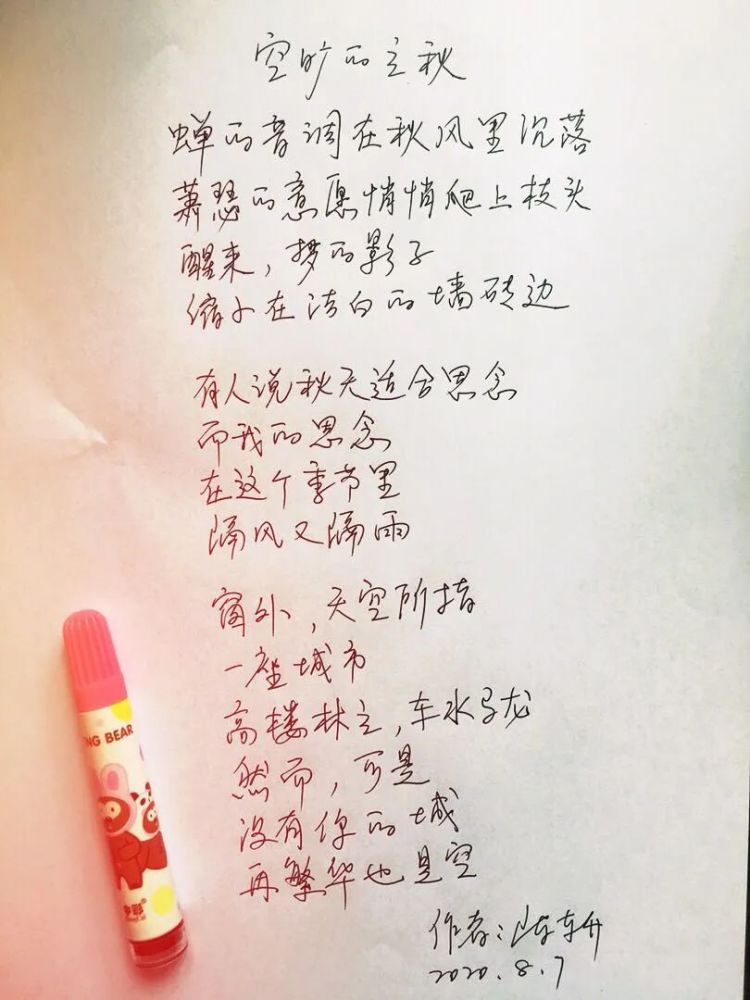 空旷的立秋
蝉的音调在秋风里沉落
萧瑟的意愿悄悄爬上枝头
醒来，梦的影子
缩小在洁白的墙砖边
有人说秋天适合思念
而我的思念
在这个季节里
隔风又隔雨
窗外，天空所指
一座城市
高楼林立，车水马龙
然而，可是
没有你的城
再繁华也是空
作者：陆轩
2020.8.7
NG BEAR